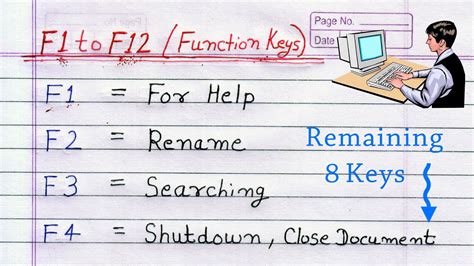 Page No.
Date
F1 to F12 (Function Keys)
F1 = For Help
F2 = Rename
F3 = Searching
F4 = Shutdown, Close Document
Remaining
8 Keys